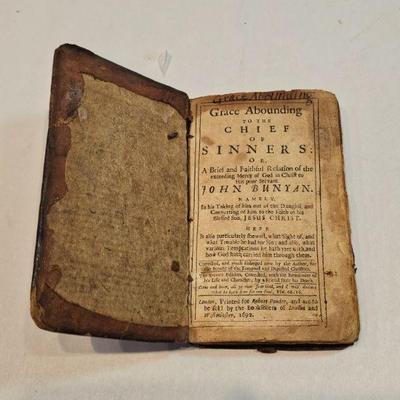 Grace Abounding
Grace Abounding
TO THE
CHIEF
OF
SINNERS:
OR,
A Brief and Faithful Relation of the
exceeding Mercy of God in Christ to
his poor Servant
JOHN BUNYAN.
NAMELY,
In his Taking of him out of the Dunghil, and
Converting of him to the Faith of his
Blessed Son, JESUS CHRIST.
HERE
Is also particularly shewed, what Sight of, and
what Trouble he had for Sin; and also, what
various Temptations he hath met with, and
how God hath carried him through them.
Corrected, and much enlarged now by the Author, for
the Benefit of the Tempted and Dejected Christian.
The Edition, Corrected, with the Remainder of
his Life and Character, by a Friend since his Death.
Come and hear, all ye that fear God, and I will declare
what he hath done for my Soul,
London, Printed for Robert Ponder, and are to
be sold by the Booksellers of London and
Westminster, 1692.